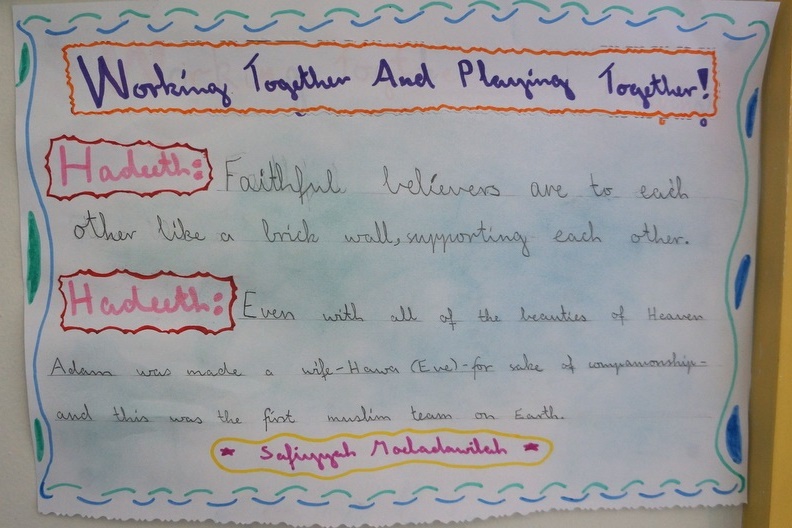 Working Together And Playing Together!
Hadeeth: Faithful believers are to each
other like a brick wall, supporting each other.
Hadeeth: Even with all of the beauties of Heaven
Adam was made a wife-Hawa (Eve)-for sake of companionship-
and this was the first muslim team on Earth.
* Safiyyah *